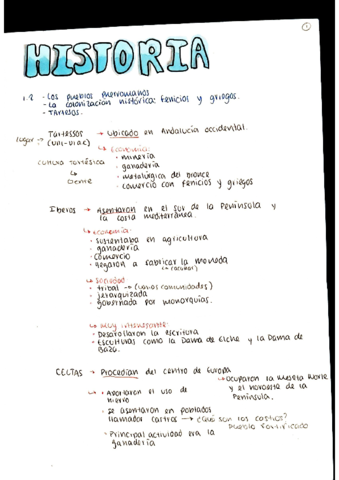 1
HISTORIA
1.2 - Los pueblos prerromanos
- La colonización histórica: fenicios y griegos.
- Tartesos.
lugar → Tartessos → Ubicado en Andalucía occidental.
(VIII-VI a.C) ↳ Economía:
cultura tartésica · minería
↳ · ganadería
· metalúrgica del bronce
· comercio con fenicios y griegos
Iberos → Asentaron en el sur de la Península y
la costa mediterránea.
↳ Economía:
· sustentaba en agricultura
· ganadería
· comercio
· llegaron a fabricar la moneda
↳ Sociedad:
· tribal → (varias comunidades)
· jerarquizada
· gobernada por monarquías.
↳ Muy interesante:
· Desarrollaron la escritura
· Esculturas como la Dama de Elche y la Dama de
Baza.
CELTAS → Procedían del centro de Europa
↳ ocuparon la Meseta Norte
y el noroeste de la
Península.
↳ · Aportaron el uso de
hierro
· Se asentaron en poblados
llamados castros → ¿Qué son los castros?
Pueblo fortificado
· Principal actividad era la
ganadería